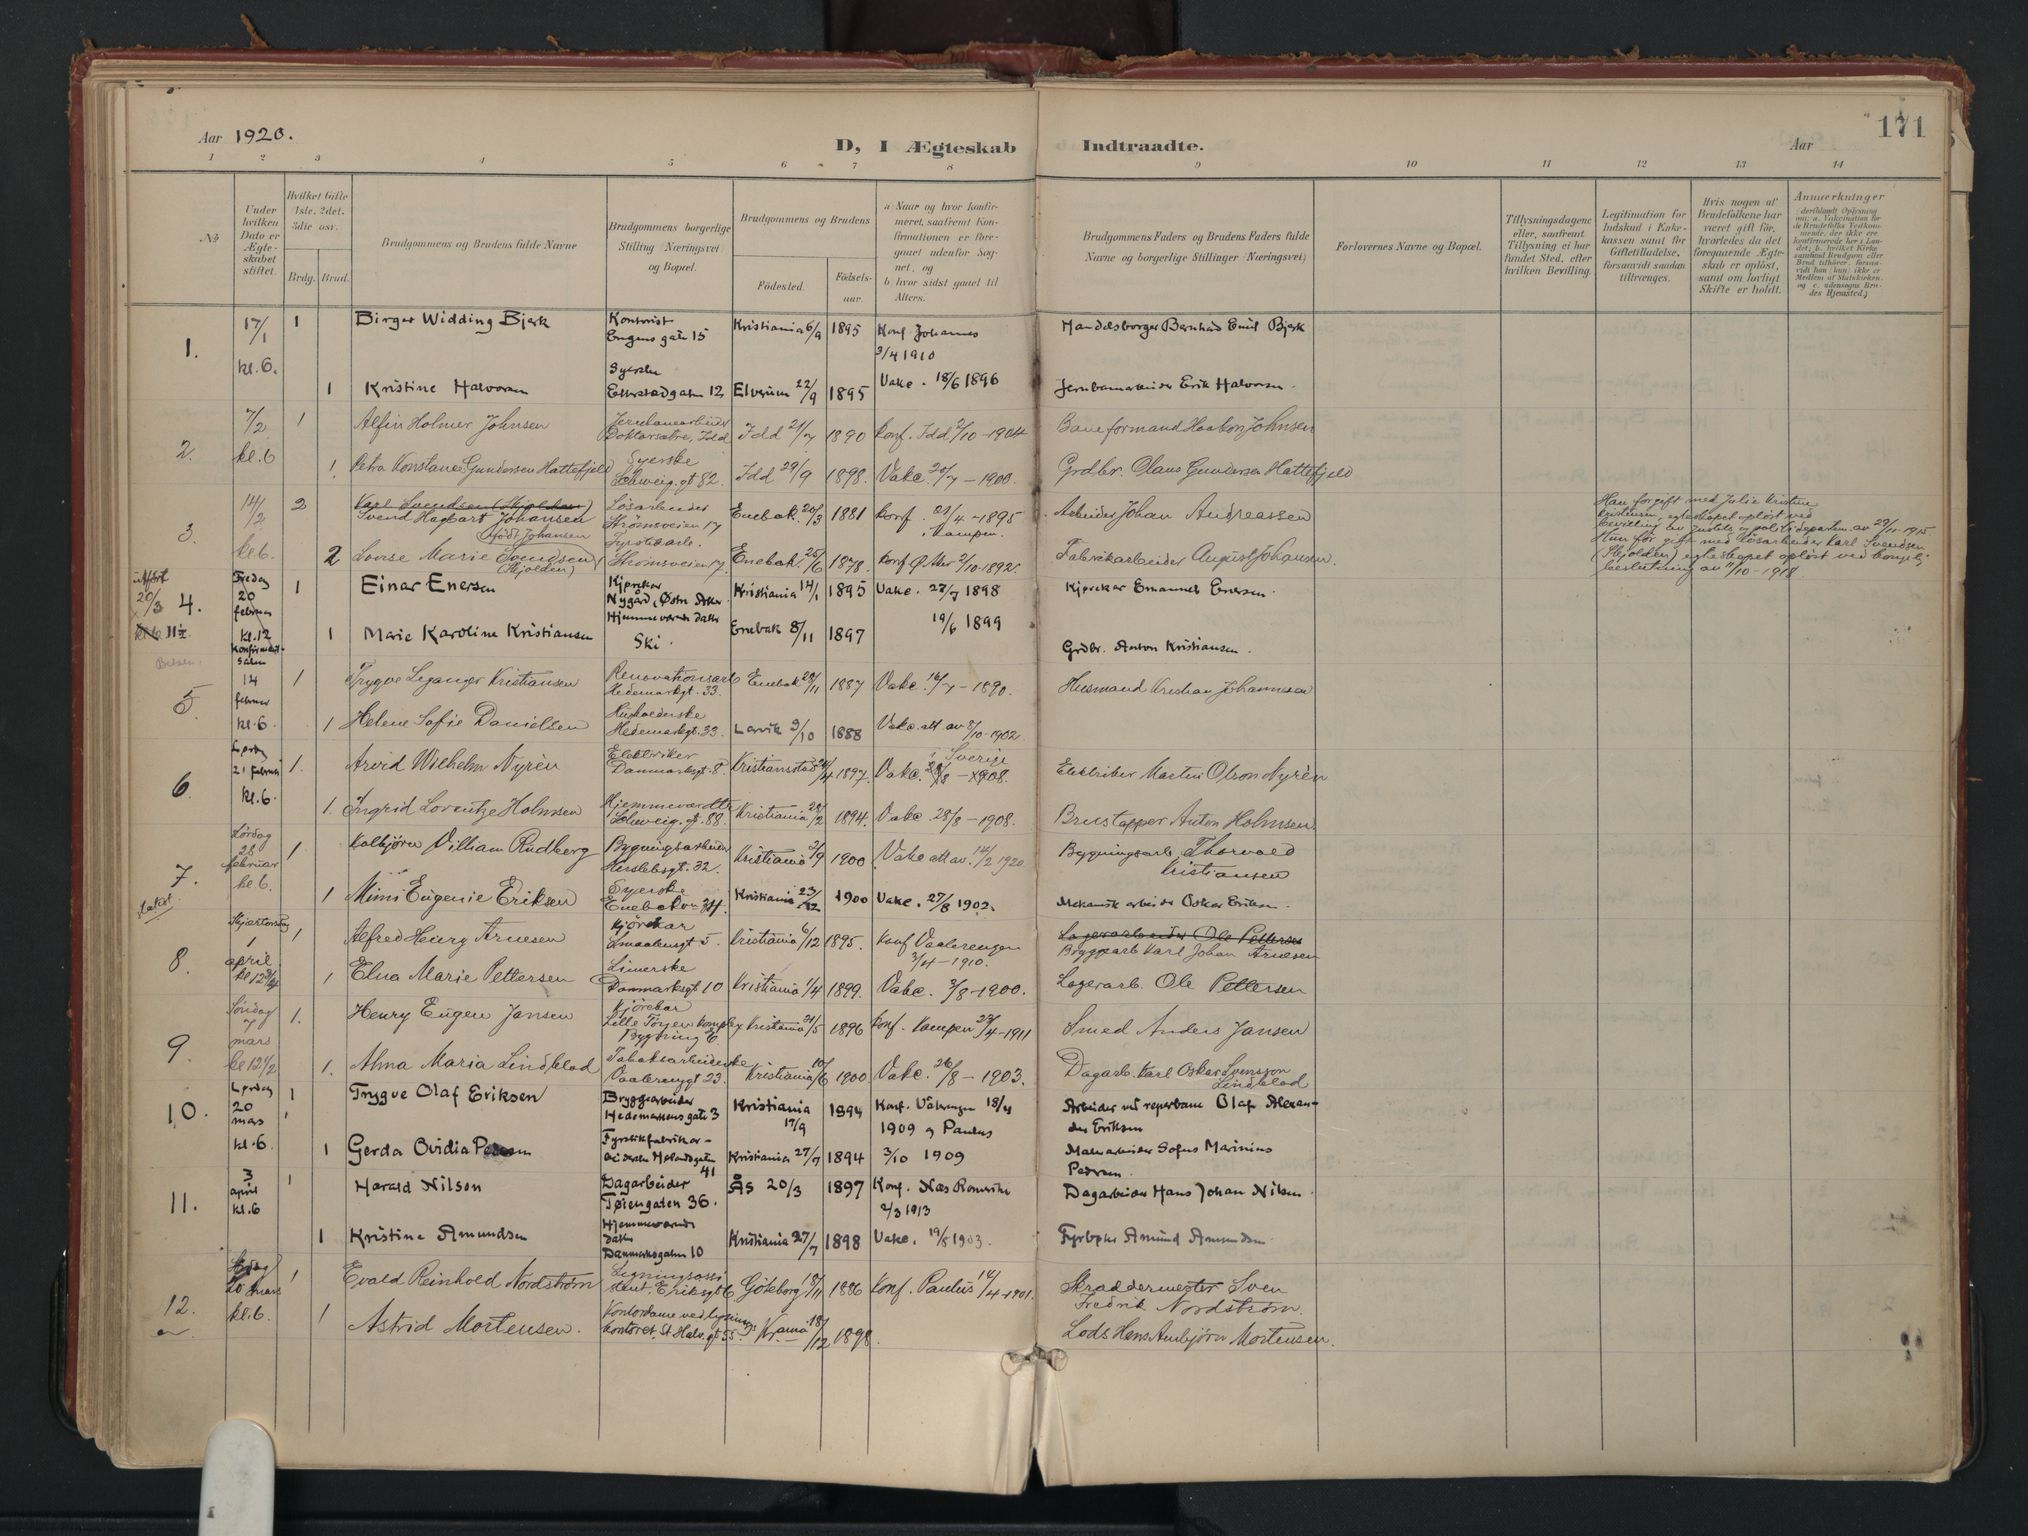 Aar 1920.
D, I Ægteskab Indtraadte.
Aar
171
1 2 3 4 5 6 7 8 9 10 11 12 13 14
No
Under hvilken Dato er Ægteskabet stiftet.
Hvilket Gifte 1ste, 2det, 3die osv.
Brdg. Brud.
Brudgommens og Brudens fulde Navne
Brudgommens borgerlige Stilling (Næringsvei) og Bopæl.
Brudgommens og Brudens
Fødested.
Fødselsaar.
a) Naar og hvor konfirmeret, saafremt Konfirmationen er foregaaet udenfor Sognet, og
b) hvor sidst gaaet til Alters.
Brudgommens Faders og Brudens Faders fulde Navne og borgerlige Stillinger (Næringsvei)
Forlovernes Navne og Bopæl.
Tillysningsdagene eller, saafremt Tillysning ei har fundet Sted, efter hvilken Bevilling.
Legitimation for Indskud i Enkekassen samt for Giftetilladelse, forsaavidt saadan tiltrænges.
Hvis nogen af Brudefolkene har været gift før, hvorledes da det foregaaende Ægteskab er opløst, samt om lovligt Skifte er holdt.
Anmærkninger
(deriblandt Oplysning om: a. Vakcination for de Brudefolks Vedkommende, der ikke ere konfirmerede her i Landet; b. hvilket Kirkesamfund Brudgom eller Brud tilhører, forsaavidt han (hun) ikke er Medlem af Statskirken, og c. udensogns Brudes Hjemsted.)
1. 17/1 kl. 6. 1 Birger Widding Bjerk Kontorist Engens gate 15 Kristiania 6/9 1895 Konf Johannes 3/4 1910 Handelsborger Bernhard Emil Bjerk
1 Kristine Halvorsen Syerske Etterstadgaten 12 Elverum 22/9 1895 Vakc. 18/6 1896 Jernbanearbeider Erik Halvorsen.
2. 7/2 kl. 6 1 Alfin Holmer Johnsen Jernbanearbeider Doktorsætre, Idd Idd 21/7 1890 Konf. Idd 2/10-1904 Baneformand Haakon Johnsen
1 Petra Konstance Gundersen Hattefjeld Syerske Schweig. gt 82. Idd 29/9 1898. Vakc. 20/7 - 1900. Grdbr. Olaus Gundersen Hattefjeld
3. 14/2 kl 6. 2 Karl Svendsen (Skjolden)
Svend Hagbart Johansen Løsarbeider Strømsveien 17 Enebak. 20/3 1881 Konf. 21/4-1895 i Kampen. Arbeider Johan Andreassen
(født Johansen)
2 Lovise Marie Svendsen (Skjolden) Fyrstikarb. Strømsveien 17. Enebak. 25/6 1878. Konf Ø. Aker 2/10-1892. Fabrikarbeider August Johansen.
Han før gift med Julie Kristine Kristensen, egteskapet opløst ved bevilling av Justits og politidepartem. av 29/11-1915.
Hun før gift med Løsarbeider Karl Svendsen (Skjolden) egteskapet opløst ved kongelig beslutning av 11/10-1918.
utført 20/3 kl. 11½
4. Fredag 20 februar kl. 12 Konfirmantsalen 1 Einar Enersen Kjørekar Nygård, Østre Aker Kristiania 14/1 1895 Vakc. 27/7 1898 Kjørekar Emanuel Enersen.
1 Marie Karoline Kristiansen Hjemmeværende datter Ski. Enebak 8/11 1897 19/6 1899 Grdbr. Anton Kristiansen.
5. 14 februar kl. 6 1 Trygve Leganger Kristiansen Renovationsarb Hedemarkgt. 33. Enebak 29/11 1887 Vakc. 16/7 - 1890. Husmand Kristian Johannesen
1 Helene Sofie Danielsen Husholderske Hedemarkgt. 33. Larvik 9/10 1888 Vakc. att av 8/10-1902.
6. Lørdag 21 februar kl. 6. 1. Arvid Wilhelm Nyrén Elektriker Danmarksgt. 8. Kristiansstad 24/4 1897. i Sverige Vakc. - 1908. Elektriker Martin Olson Nyrén
1. Ingrid Lorentze Holmsen Hjemmeværdtr Schweig. gt. 88. Kristiania 28/2 1894. Vakc. 28/8 - 1908. Brustapper Anton Holmsen.
7. Lördag 28 februar kl. 6. 1. Kolbjørn Villiam Rudberg Bygningsarbeider Herslebsgt. 32. Kristiania 3/9 1900 Vakc att av. 14/2 1920 Bygningsarb. Thorvald Kristiansen
1 Mimi Eugenie Eriksen Syerske Enebakvn 34. Kristiania 23/12 1900 Vakc. 27/8 1902. Mekanisk arbeider Oskar Eriksen.
8. Skjærtorsdag 1 april kl 12 3/4 1 Alfred Henry Arnesen Kjörekar Smaalensgt 5. Kristiania 6/12 1895. Konf Vaalerengen 3/4-1910. Lagerarbeider Ole Pettersen
Byggearb Karl Johan Arnesen
1 Elna Marie Pettersen Limerske Danmarksgt 10 Kristiania 1/4 1899. Vakc. 3/8-1900. Lagerarb. Ole Pettersen
9. Söndag 7 mars kl 12 1/2 1. Henry Eugen Jansen Kjörekar Lille Tøyen Komplex Bygning E. Kristiania 21/5 1896 Konf. Kampen 23/4-1911 Smed Anders Jansen
1. Alma Maria Lindblad Tobaksarbeiderske Vaalerenggt 23. Kristiania 10/6 1900 Vakc. 26/8 - 1903. Dagarb. Karl Oskar Svensson Lindblad
10. Lørdag 20 mars kl. 6 1 Trygve Olaf Eriksen Bryggearbeider Hedemarkens gate 3 Kristiania 17/9 1894 Konf. Vålerengen 18/4 1909 og Paulus Arbeider ved reperbane Olaf Alexander Eriksen
1 Gerda Ovidia Pedersen Fyrstikfabrikarbeiderske 41 Kristiania 27/7 1894 3/10 1909 Sofus Marinius Pedersen.
11. 3 april kl. 6 1 Harald Nilsen Dagarbeider Tøiengaten 36. Ås 20/3 1897 Konf. Næs Romerike 2/3 1913 Dagarbeider Hans Johan Nilsen
1 Kristine Amundsen Hjemmeværende datter Danmarksgaten 10 Kristiania 27/7 1898 Vakc. 19/8 1903. Fyrbøter Amund Amundsen
12. 20 mars kl. 6. 1 Evald Reinhold Nordstrøm Ligningsassistent. Eriksgt 6 Göteborg 18/11 1886 Konf. Paulus 14/4-1901. Skraddermester Sven Fredrik Nordstrøm.
1 Astrid Mortensen. Kontordame ved lysningskontoret, St Halv. gt 55. Kr.ania 18/12 1898. Lods Hans Arnbjörn Mortensen.